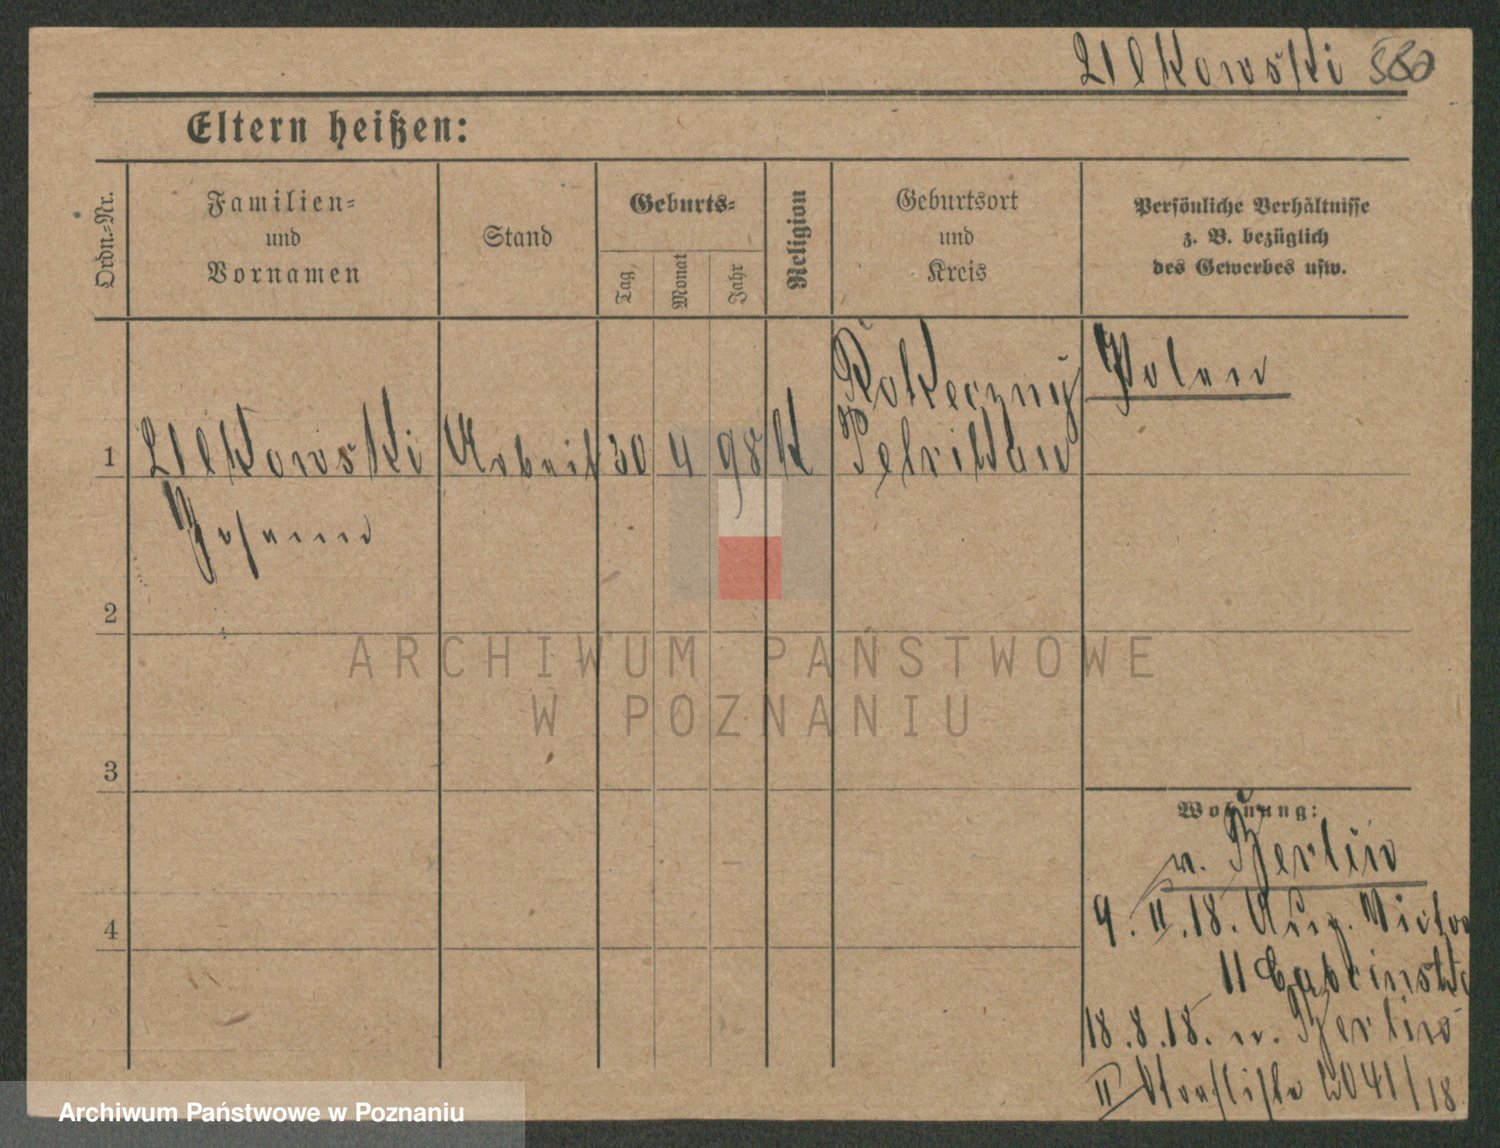 Ulkowski 580
Eltern heißen:
Ordn.-Nr.
Familien-
und
Vornamen
Stand
Geburts-
Tag
Monat
Jahr
Religion
Geburtsort
und
Kreis
Persönliche Verhältnisse
z. B. bezüglich
des Gewerbes usw.
1
Ulkowski
Arbeit
30
4
98
K
Petrikau
Polen
2
3
4
Wohnung:
n. Berlin
9. II. 18. Aug. Victor
11
18.8.18. n. Berlin
II 2041/18
ARCHIWUM PAŃSTWOWE
W POZNANIU
Archiwum Państwowe w Poznaniu